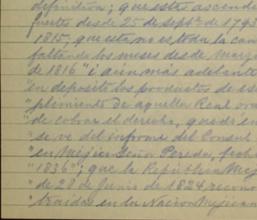 definitiva; que estas ascendi
fuertes desde 25 de Septbre. de 1793
1815, que esta no es toda la can
faltando los meses desde Marzo
de 1816" i aun mas adelante
"en deposito los productos de es
"plimiento de aquella Real
"de cobrar el derecho, quedó en
"se ve del informe del Consul
"en Méjico Señor Pereda, fech
"1836"; que la República Mej
"de 28 de Junio de 1824 recono
"traidas en la Nacion Mejicana